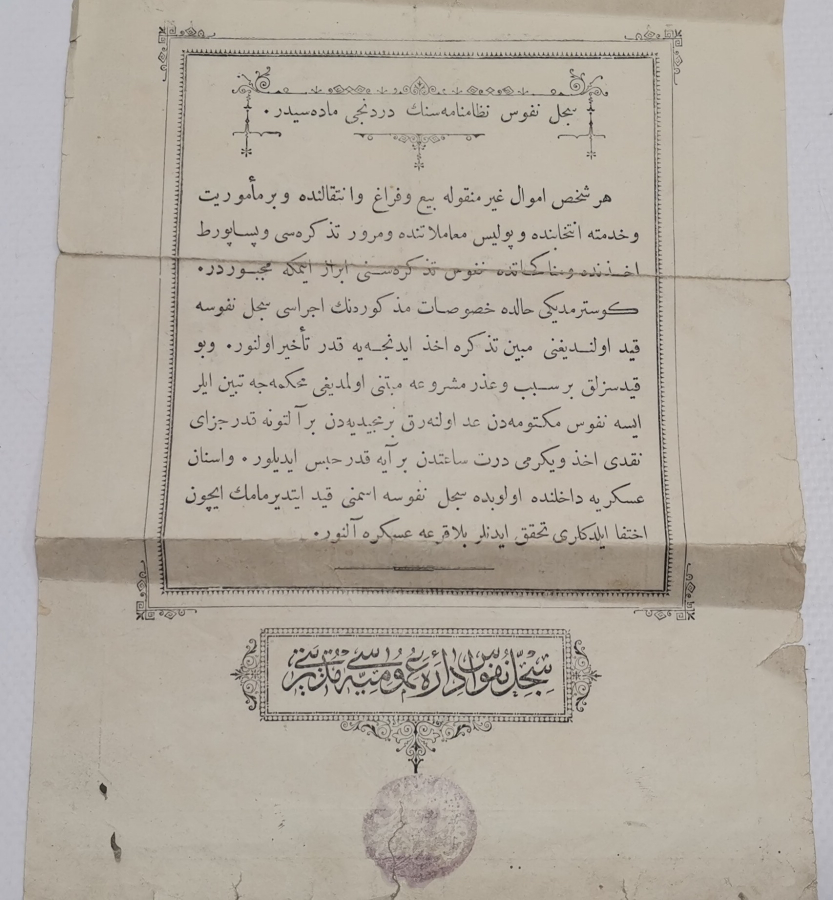 سجل نفوس نظامنامه‌سنك دردنجی ماده‌سیدر .
هر شخص اموال غیر منقوله بیع و فراغ و انتقالنده و بر مأموریت
و خدمته انتخابنده و پولیس معاملاتنده و مرور تذكره‌سی و پساپورط
اخذنده و مناكحاتده نفوس تذكره‌سنی ابراز ایتمكه مجبوردر .
كوسترمدیكی حالده خصوصات مذكوره‌نك اجراسی سجل نفوسه
قید اولندیغنی مبین تذكره اخذ ایدنجه‌یه قدر تأخیر اولنور . و بو
قیدسزلق بر سبب و عذر مشروعه مبتنی اولمدیغی محكمه‌جه تبین ایلر
ایسه نفوس مكتومه‌دن عد اوله‌رق بر مجیدیه‌دن بر آلتونه قدر جزای
نقدی اخذ و یكرمی درت ساعتدن بر آیه قدر حبس ایدیلور . و اسنان
عسكریه داخلنده اولوبده سجل نفوسه اسمنی قید ایتدیرمامك ایچون
اختفا ایلدكاری تحقق ایدنلر بلا قرعه عسكره آلنور .
سجل نفوس اداره عمومیه سی مدیریتی